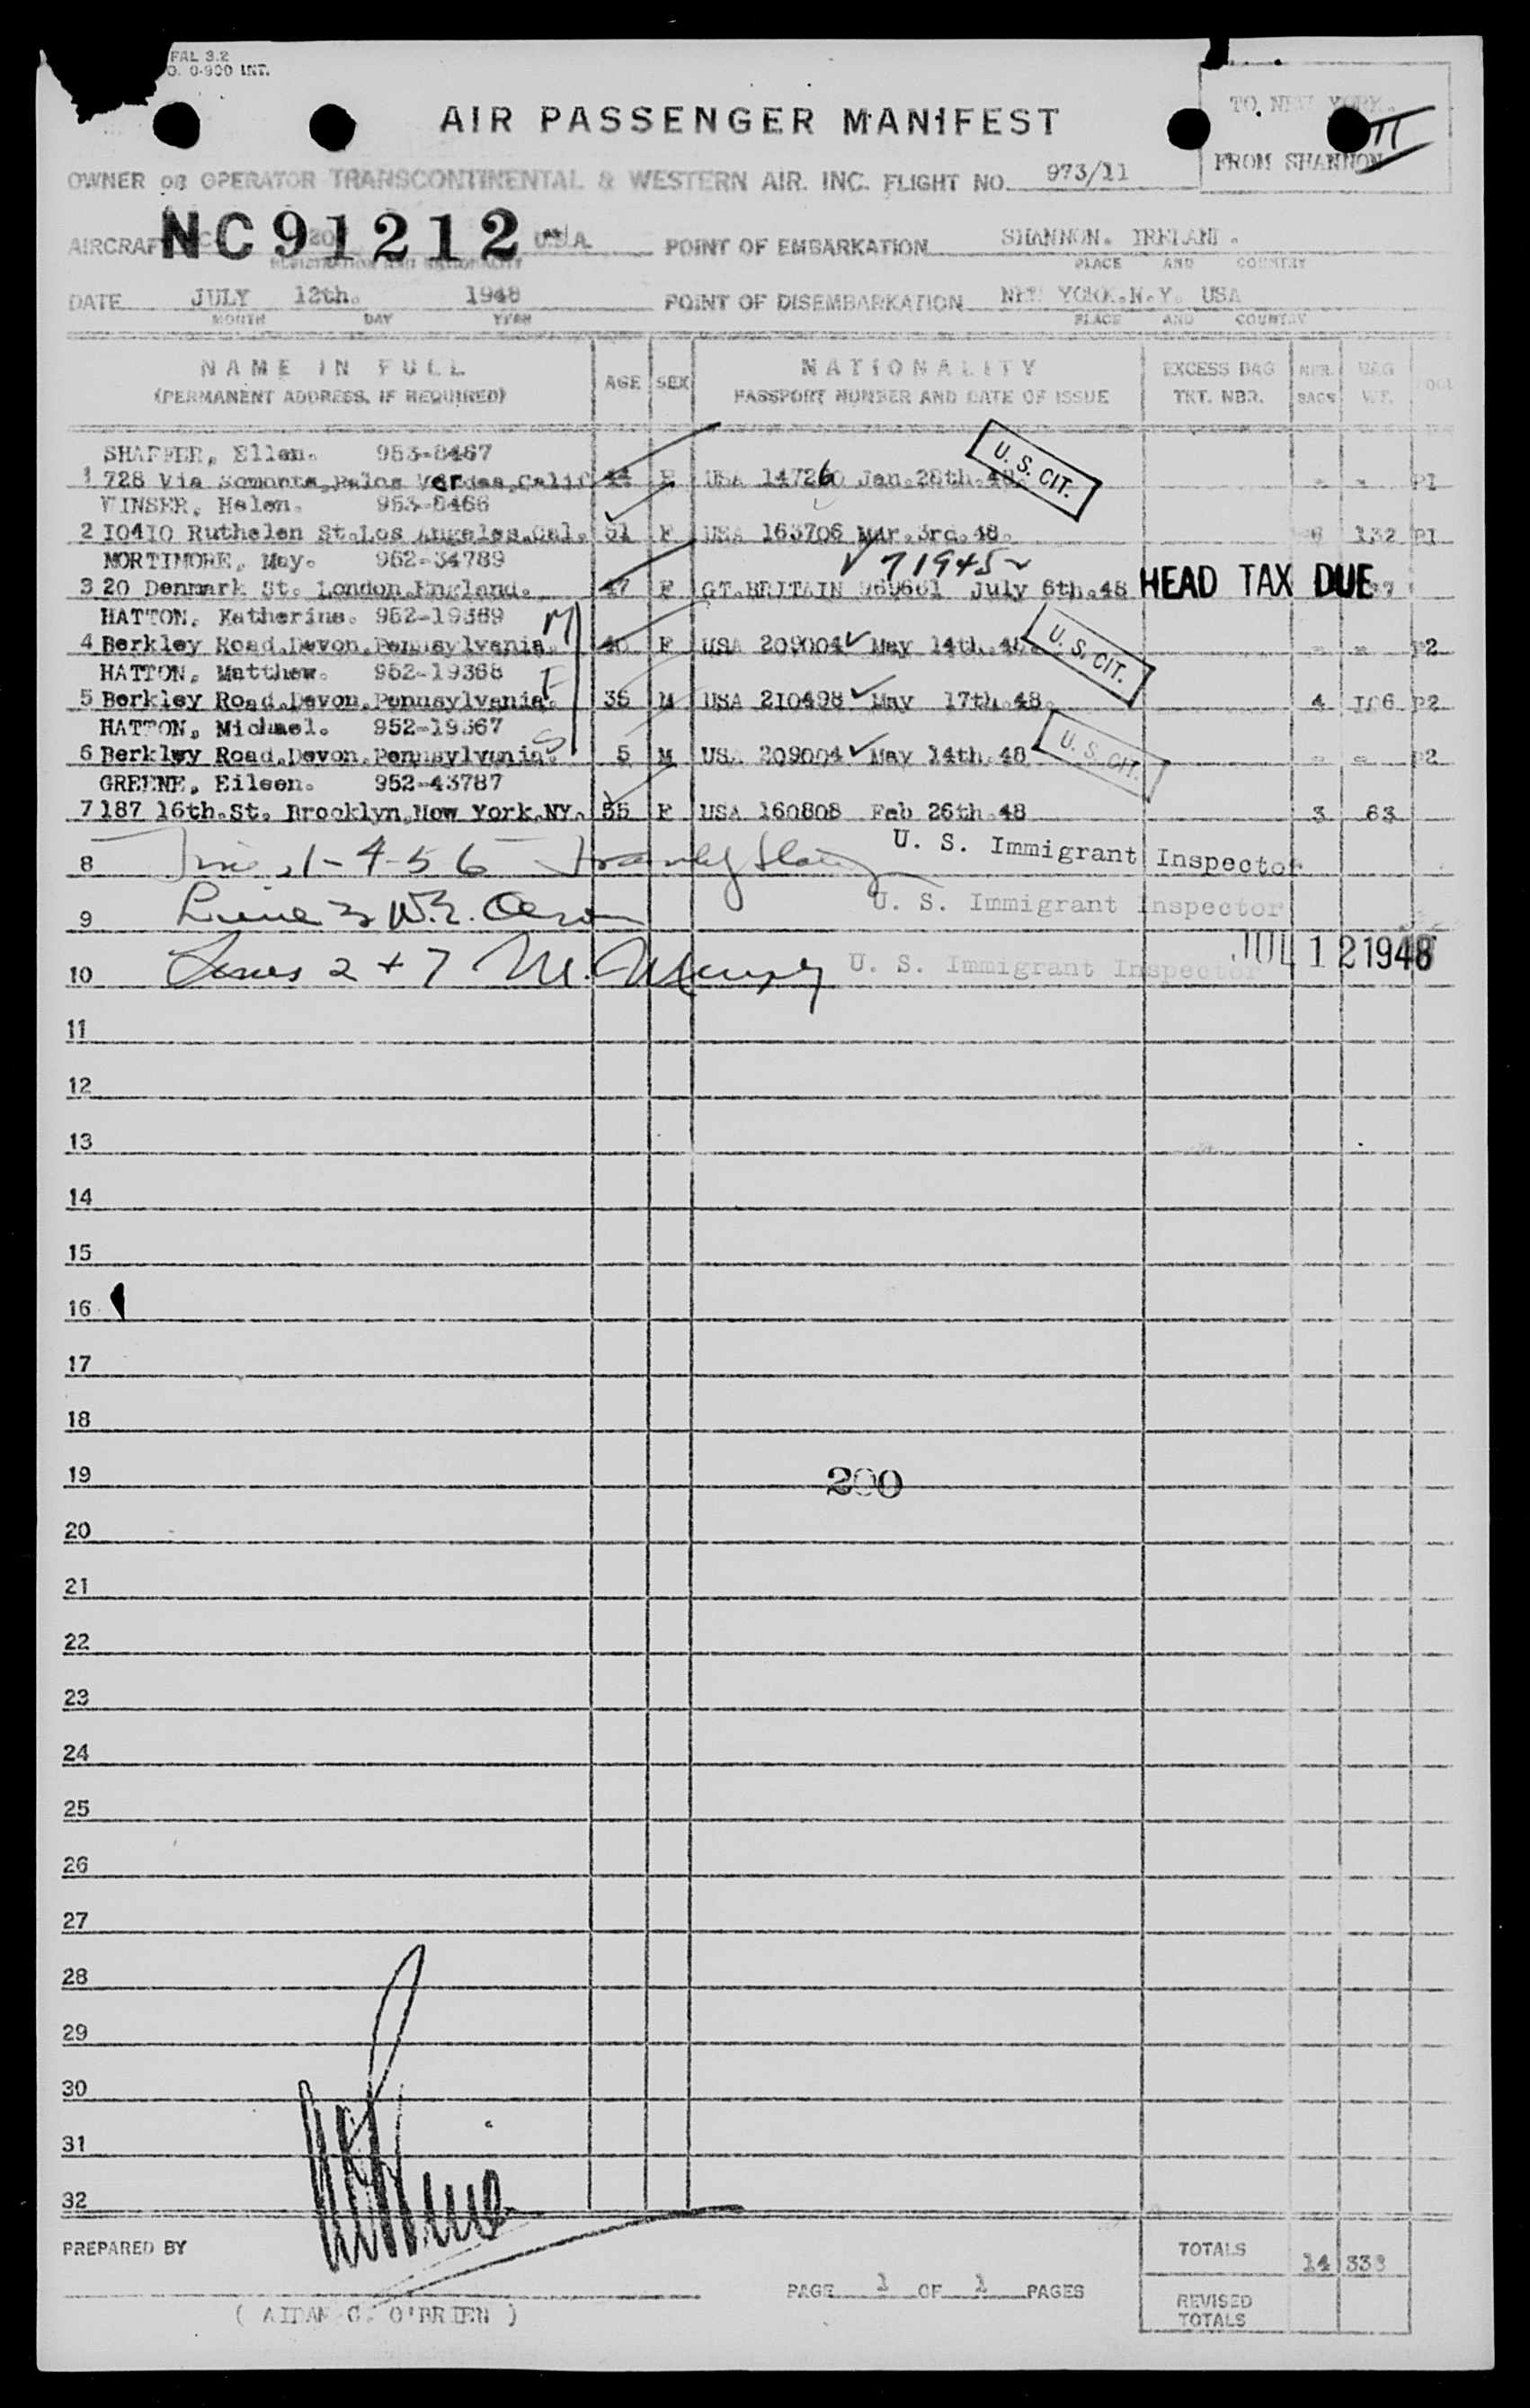 FAL 3.2
O. 0-900 INT.
AIR PASSENGER MANIFEST
TO NEW YORK.
II
FROM SHANNON
OWNER OR OPERATOR TRANSCONTINENTAL & WESTERN AIR. INC. FLIGHT NO. 973/11
AIRCRAFT NC91212 U.S.A. POINT OF EMBARKATION SHANNON. IRELAND.
REGISTRATION AND NATIONALITY PLACE AND COUNTRY
DATE JULY 12th. 1948 POINT OF DISEMBARKATION NEW YORK.N.Y. USA
MONTH DAY YEAR PLACE AND COUNTRY
NAME IN FULL AGE SEX NATIONALITY EXCESS BAG NBR. BAG
(PERMANENT ADDRESS, IF REQUIRED) PASSPORT NUMBER AND DATE OF ISSUE TKT. NBR. BAGS WT.
SHAFFER, Ellen. 953-8467
1 728 Via Somonte,Palos Verdes,Calif 44 F USA 147260 Jan.28th.48. U. S. CIT. - - P1
WINSER, Helen. 953-8466
2 10410 Ruthelen St.Los Angeles.Cal. 51 F USA 163706 Mar.3rd.48. 132 P1
MORTIMORE, May. 952-34789 719452
3 20 Denmark St. London.England. 47 F GT.BRITAIN July 6th.48 HEAD TAX DUE
HATTON. Katherine. 952-19369 M
4 Berkley Road.Devon.Pennsylvania. F USA 209004 May 14th.48 U. S. CIT. - - P2
HATTON, Matthew. 952-19368 F
5 Berkley Road.Devon.Pennsylvania. 36 M USA 210498 May 17th.48. 4 106 P2
HATTON, Michael. 952-19367 S
6 Berkley Road.Devon.Pennsylvania. 5 M USA 209004 May 14th.48 U. S. CIT. - - P2
GREENE, Eileen. 952-43787
7 187 16th.St. Brooklyn,New York.NY. 55 F USA 160808 Feb 26th.48 3 63
8 1-4-5 6 U. S. Immigrant Inspector
9 Line 3 U. S. Immigrant Inspector
10 Lines 2 + 7 M. U. S. Immigrant Inspector JUL 12 1948
11
12
13
14
15
16
17
18
19 200
20
21
22
23
24
25
26
27
28
29
30
31
32
PREPARED BY TOTALS 14 338
( AIDAN C. O'BRIEN ) PAGE 1 OF 1 PAGES
REVISED
TOTALS